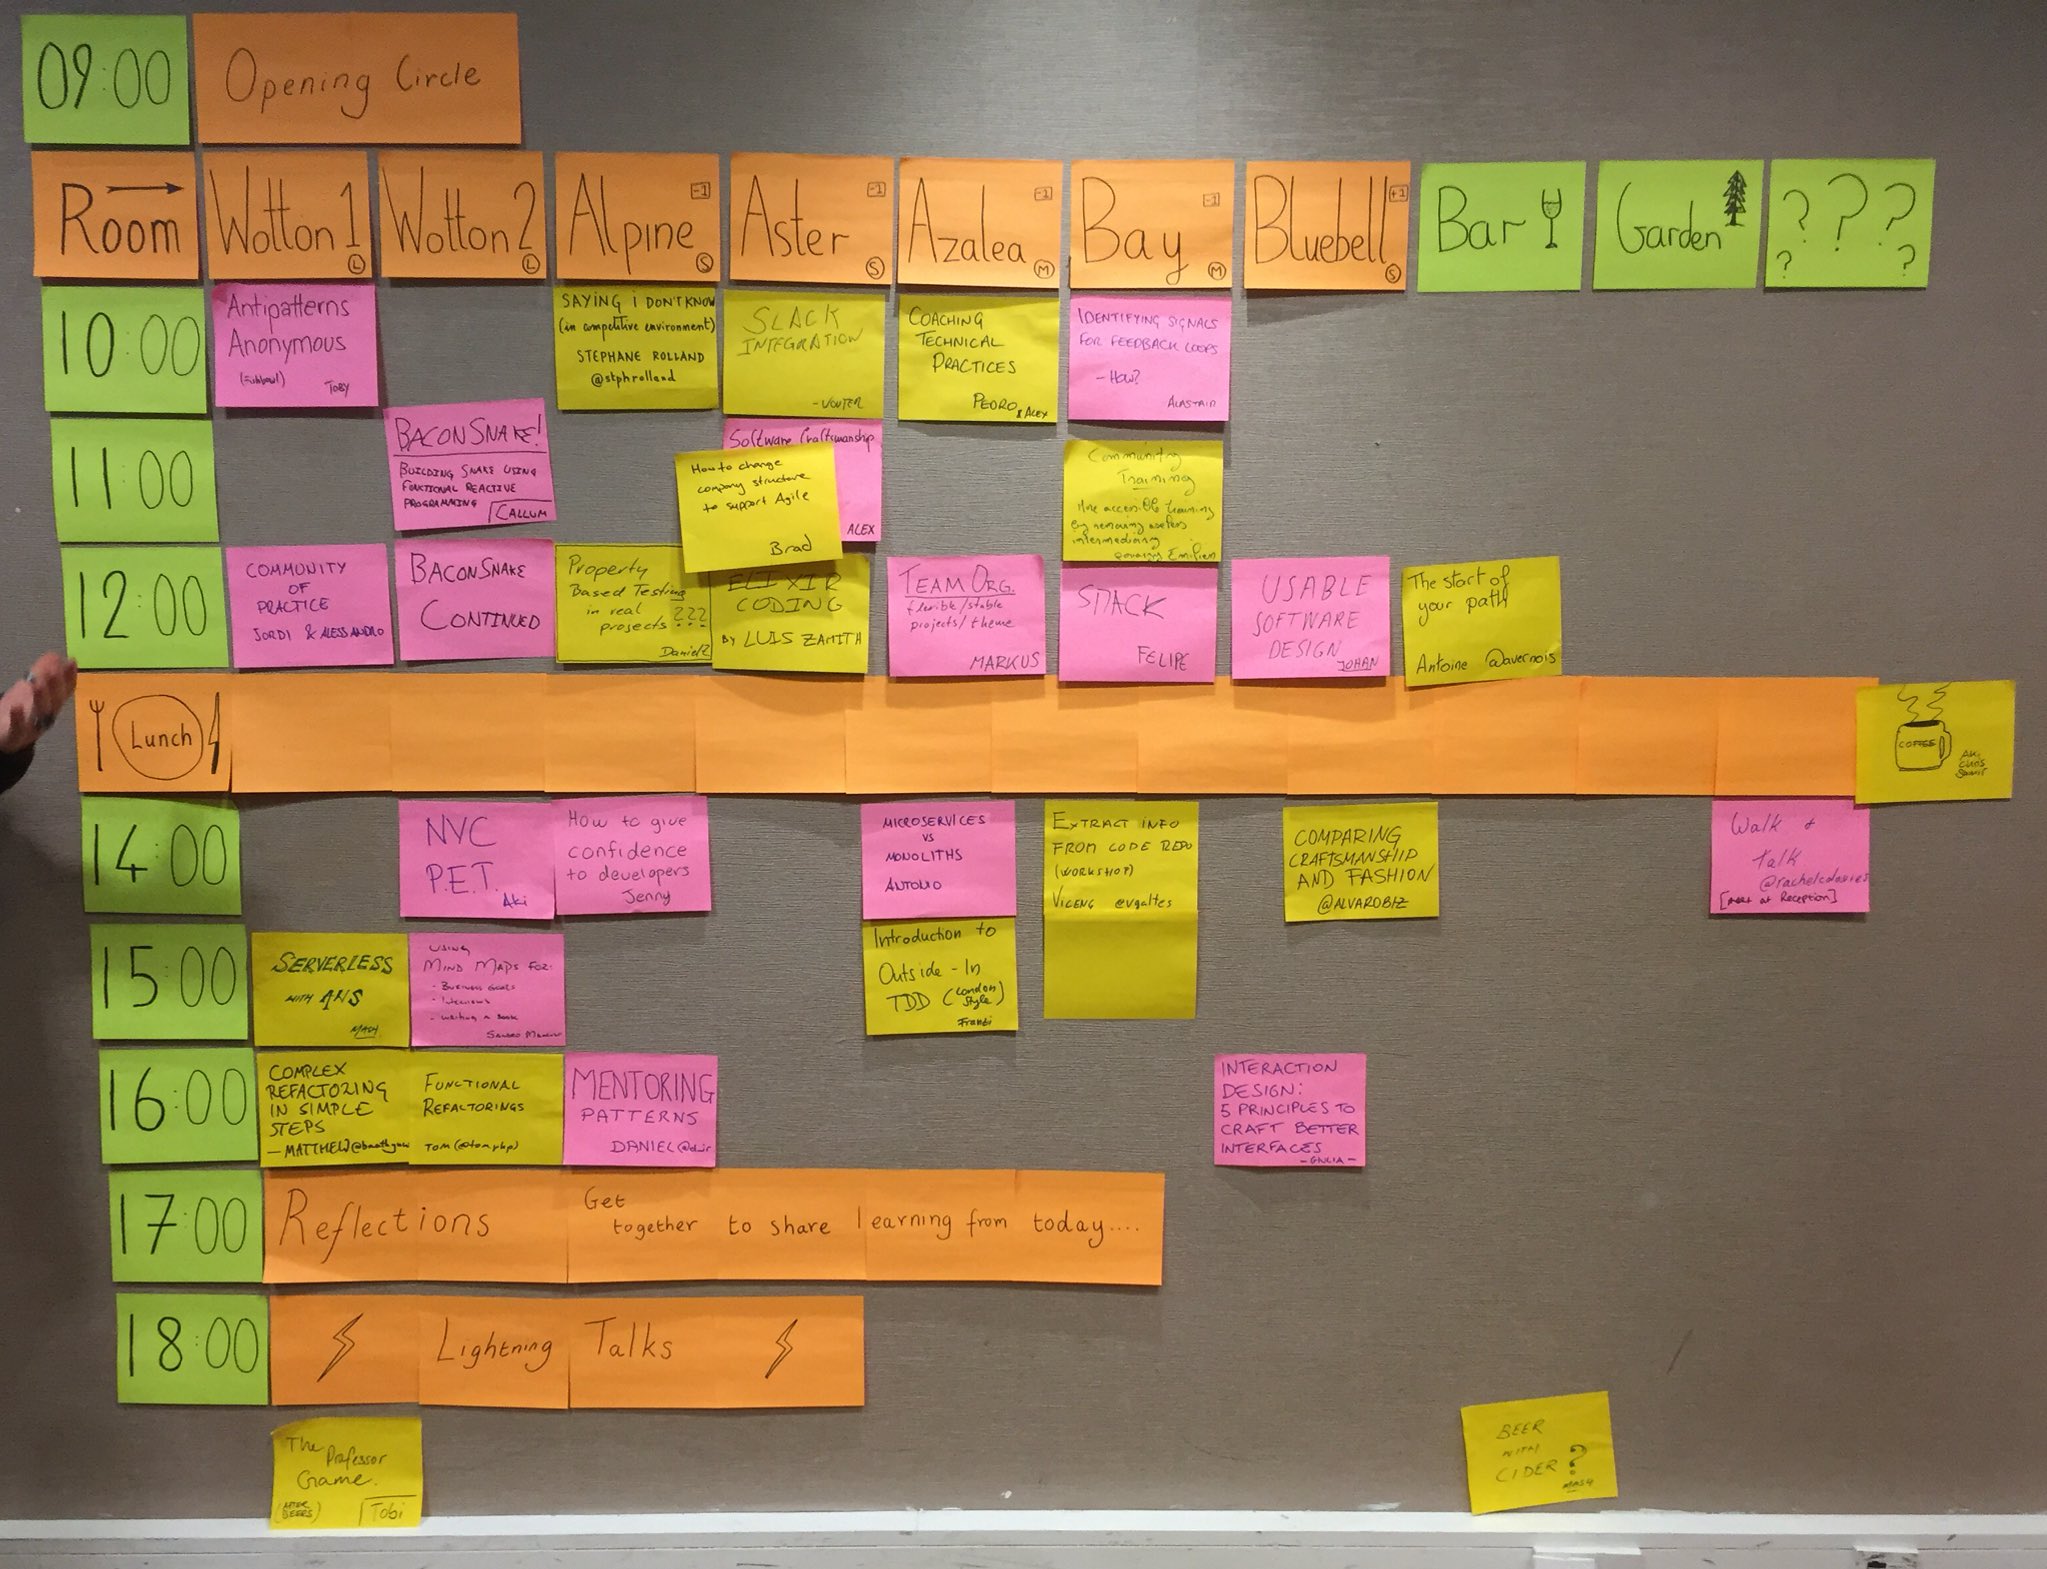 09:00
Opening Circle
Room
Wotton 1
L
Wotton 2
L
Alpine
-1
S
Aster
-1
S
Azalea
-1
M
Bay
-1
M
Bluebell
+1
S
Bar
Garden
? ? ? ? ?
10:00
Antipatterns
Anonymous
(Fishbowl) TOBY
SAYING I DON'T KNOW
(in competitive environment)
STEPHANE ROLLAND
@stphrolland
SLACK
INTEGRATION
- WOUTER
COACHING
TECHNICAL
PRACTICES
PEDRO & ALEX
IDENTIFYING SIGNALS
FOR FEEDBACK LOOPS
- HOW?
ALASTAIR
11:00
BACON SNAKE!
BUILDING SNAKE USING
FUNCTIONAL REACTIVE
PROGRAMMING CALLUM
Software Craftsmanship
ALEX
How to change
company structure
to support Agile
Brad
Community
Training
More accessible training
by removing
Emilien
12:00
COMMUNITY
OF
PRACTICE
JORDI & ALESSANDRO
BACON SNAKE
CONTINUED
Property
Based Testing
in real
projects ???
Daniel
ELIXIR
CODING
BY LUIS ZAMITH
TEAM ORG.
flexible/stable
projects/theme
MARKUS
FELIPE
USABLE
SOFTWARE
DESIGN
JOHAN
The start of
your path
Antoine @avernois
Lunch
COFFEE
Aki
Chris
14:00
NYC
P.E.T.
Aki
How to give
confidence
to developers
Jenny
MICROSERVICES
VS
MONOLITHS
ANTONIO
EXTRACT INFO
FROM CODE REPO
(WORKSHOP)
VICENÇ @vgaltes
COMPARING
CRAFTSMANSHIP
AND FASHION
@ALVAROBIZ
Walk &
Talk
@rachelcdavies
[meet at Reception]
15:00
SERVERLESS
WITH AWS
MASH
USING
MIND MAPS FOR:
- BUSINESS GOALS
- INTERVIEWS
- WRITING A BOOK
SANDRO MANCUSO
Introduction to
Outside-In
TDD (London
Style)
Franzi
16:00
COMPLEX
REFACTORING
IN SIMPLE
STEPS
- MATTHEW
FUNCTIONAL
REFACTORINGS
TOM (@tomphp)
MENTORING
PATTERNS
DANIEL
INTERACTION
DESIGN:
5 PRINCIPLES TO
CRAFT BETTER
INTERFACES
- GIULIA -
17:00
Reflections
Get
together to share learning from today....
18:00
Lightning Talks
The
Professor
Game.
(AFTER
BEERS)
Tobi
BEER
WITH
CIDER ?
MASH